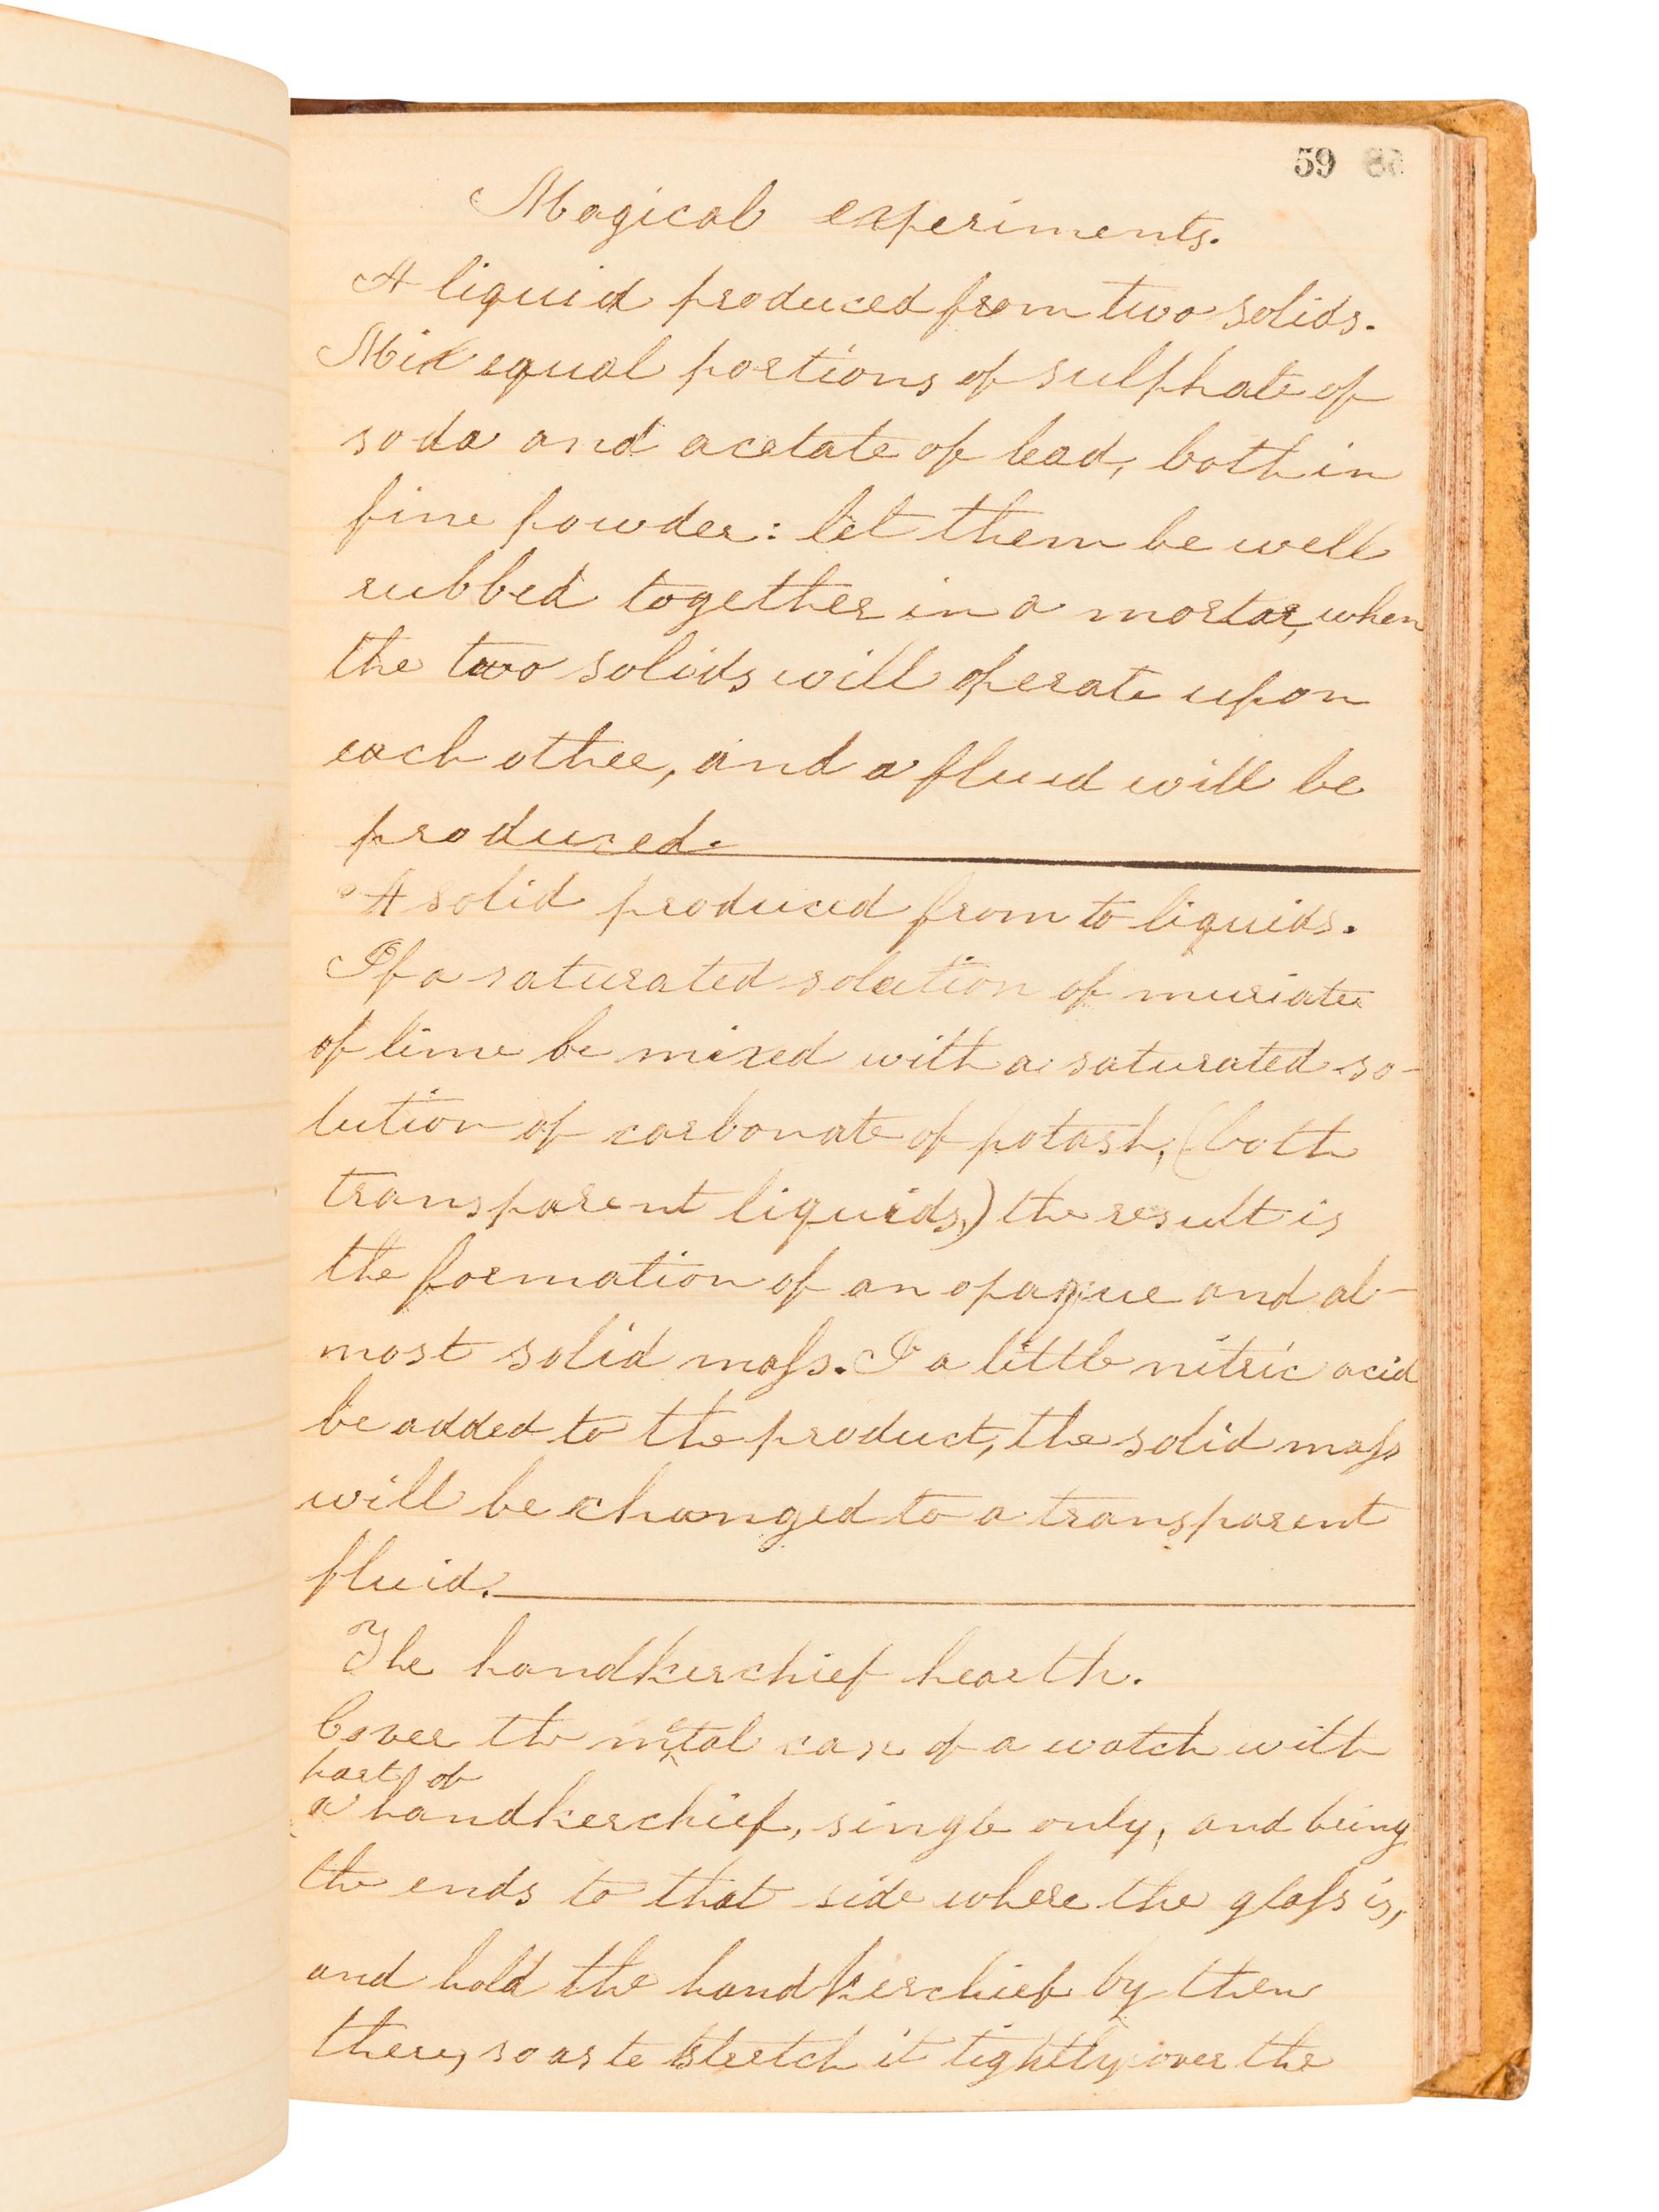 59
Magical experiments.
A liquid produced from two solids.
Mix equal portions of sulphate of
soda and acetate of lead, both in
fine powder: let them be well
rubbed together in a mortar, when
the two solids will operate upon
each other, and a fluid will be
produced.
A solid produced from to liquids.
If a saturated solution of muriate
of lime be mixed with a saturated so-
lution of carbonate of potash, (both
transparent liquids,) the result is
the formation of an opaque and al-
most solid mass. I a little nitric acid
be added to the product, the solid mass
will be changed to a transparent
fluid.
The handkerchief hearth.
Cover the metal case of a watch with
part of
a handkerchief, single only, and being
the ends to that side where the glass is,
and hold the handkerchief by then
there, so as to stretch it tightly over the